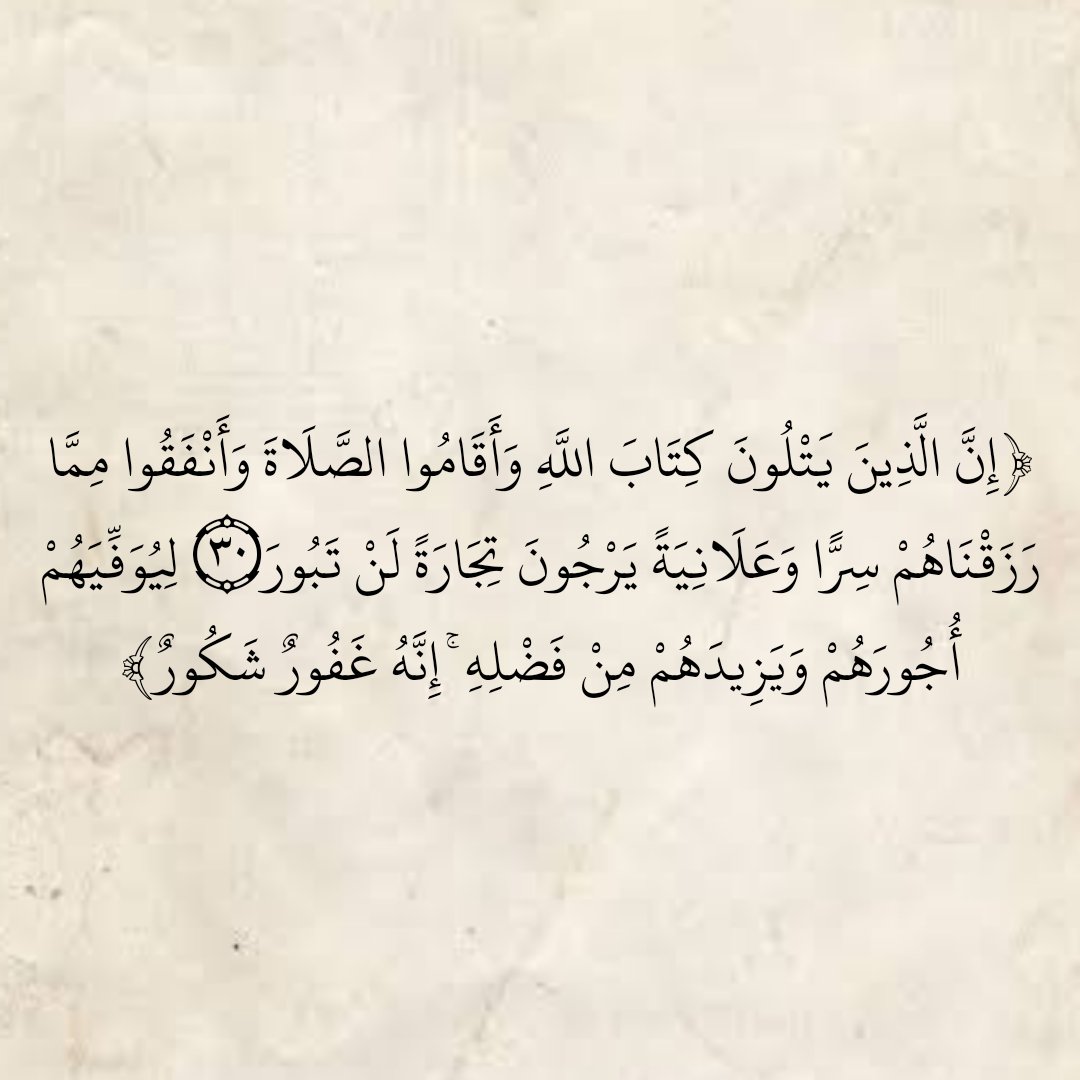 ﴿إِنَّ الَّذِينَ يَتْلُونَ كِتَابَ اللَّهِ وَأَقَامُوا الصَّلَاةَ وَأَنْفَقُوا مِمَّا
رَزَقْنَاهُمْ سِرًّا وَعَلَانِيَةً يَرْجُونَ تِجَارَةً لَنْ تَبُورَ ۝٣٠ لِيُوَفِّيَهُمْ
أُجُورَهُمْ وَيَزِيدَهُمْ مِنْ فَضْلِهِ ۚ إِنَّهُ غَفُورٌ شَكُورٌ﴾